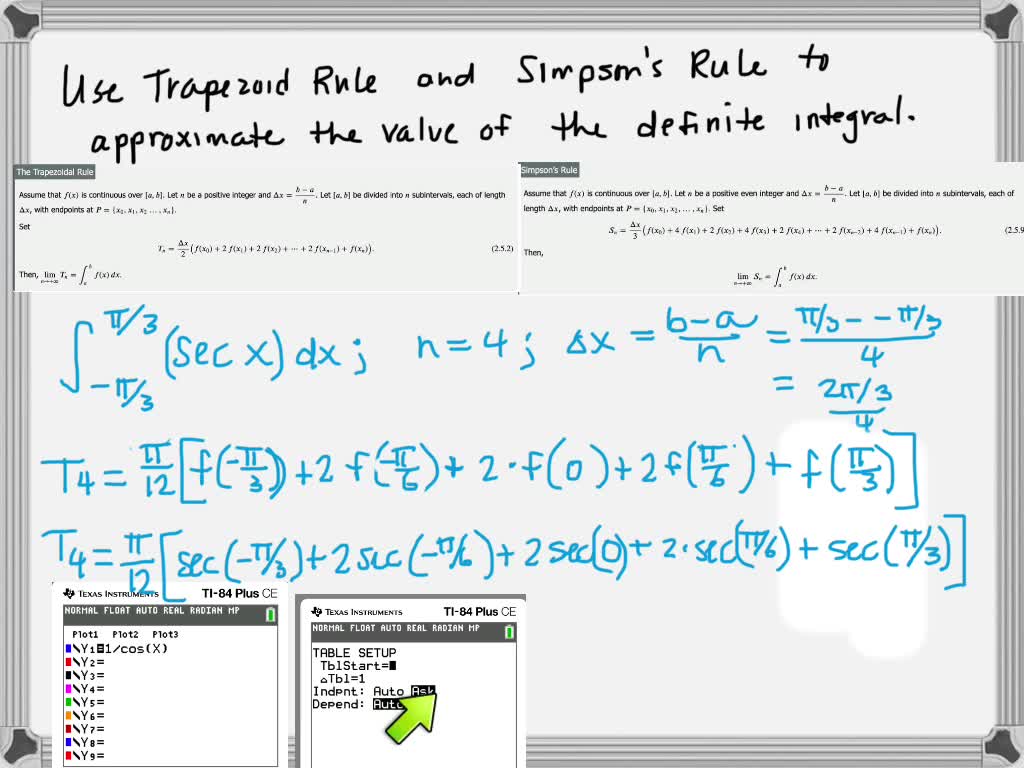 Use Trapezoid Rule and Simpson's Rule to
approximate the value of the definite integral.
The Trapezoidal Rule
Assume that f(x) is continuous over [a, b]. Let n be a positive integer and Δx = (b−a)/n. Let [a, b] be divided into n subintervals, each of length
Δx, with endpoints at P = {x₀, x₁, x₂ …, xₙ}.
Set
Tₙ = Δx/2 (f(x₀) + 2 f(x₁) + 2 f(x₂) + ⋯ + 2 f(xₙ₋₁) + f(xₙ)). (2.5.2)
Then, lim n→+∞ Tₙ = ∫ₐᵇ f(x) dx.
Simpson's Rule
Assume that f(x) is continuous over [a, b]. Let n be a positive even integer and Δx = (b−a)/n. Let [a, b] be divided into n subintervals, each of
length Δx, with endpoints at P = {x₀, x₁, x₂, …, xₙ}. Set
Sₙ = Δx/3 (f(x₀) + 4 f(x₁) + 2 f(x₂) + 4 f(x₃) + 2 f(x₄) + ⋯ + 2 f(xₙ₋₂) + 4 f(xₙ₋₁) + f(xₙ)). (2.5.9
Then,
lim n→+∞ Sₙ = ∫ₐᵇ f(x) dx.
∫_{-π/3}^{π/3} (sec x) dx; n = 4; Δx = (b-a)/n = (π/3 - -π/3)/4
= (2π/3)/4
T4 = π/12 [f(-π/3) + 2 f(-π/6) + 2·f(0) + 2f(π/6) + f(π/3)]
T4 = π/12 [sec(-π/3) + 2 sec(-π/6) + 2 sec(0) + 2·sec(π/6) + sec(π/3)]
TEXAS INSTRUMENTS TI-84 Plus CE
NORMAL FLOAT AUTO REAL RADIAN MP
Plot1 Plot2 Plot3
\Y1=1/cos(X)
\Y2=
\Y3=
\Y4=
\Y5=
\Y6=
\Y7=
\Y8=
\Y9=
TEXAS INSTRUMENTS TI-84 Plus CE
NORMAL FLOAT AUTO REAL RADIAN MP
TABLE SETUP
TblStart=
△Tbl=1
Indpnt: Auto Ask
Depend: Auto